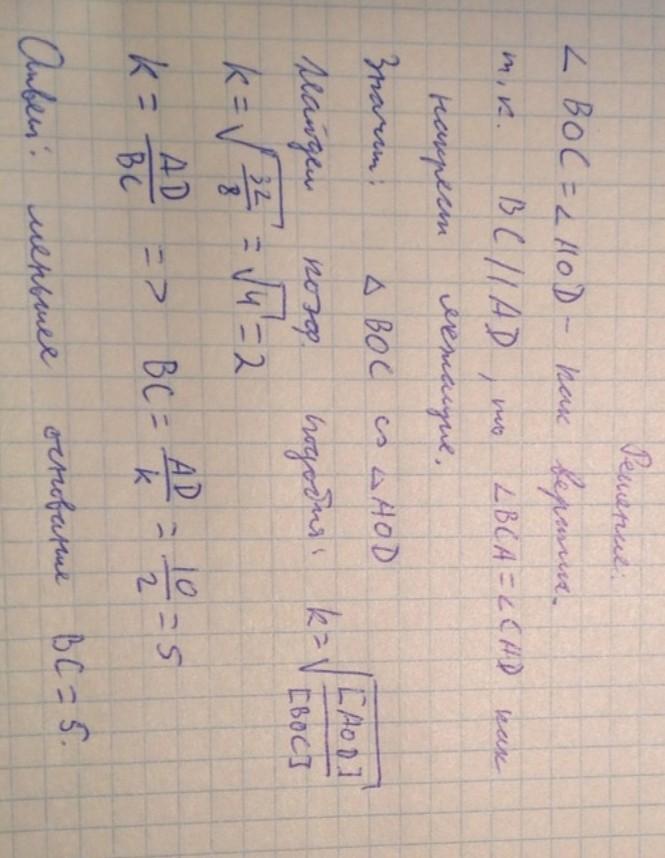 Решение:
∠ BOC = ∠ AOD - как вертик.
т.к. BC // AD, то ∠BCA = ∠CAD как
накрест лежащие.
Значит: △ BOC ∽ △ AOD
Найдем коэф. подобия: k = √([AOD]/[BOC])
k = √(32/8) = √4 = 2
k = AD/BC => BC = AD/k = 10/2 = 5
Ответ: меньшее основание BC = 5.